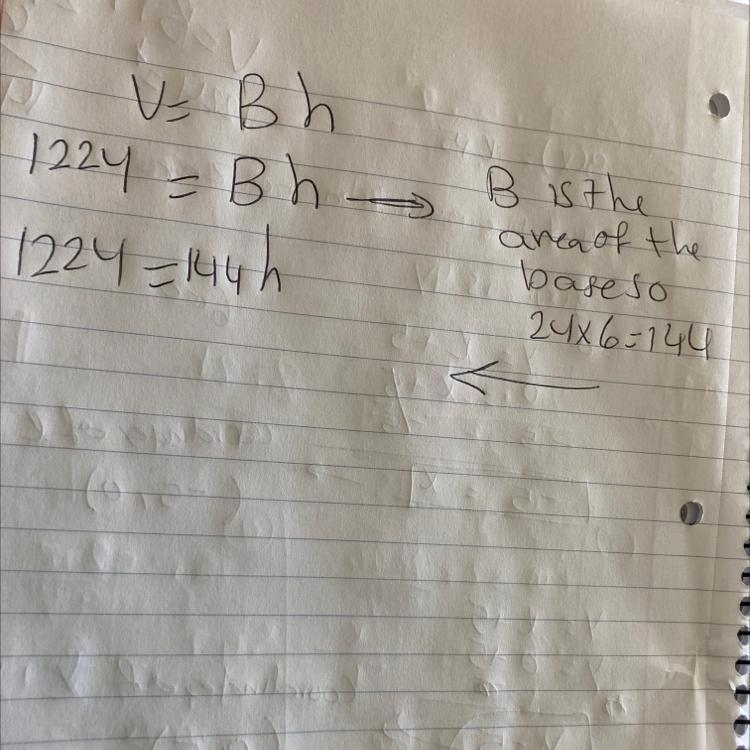 V= Bh
1224 = Bh → B is the
area of the
base so
24x6=144
←
1224 = 144h